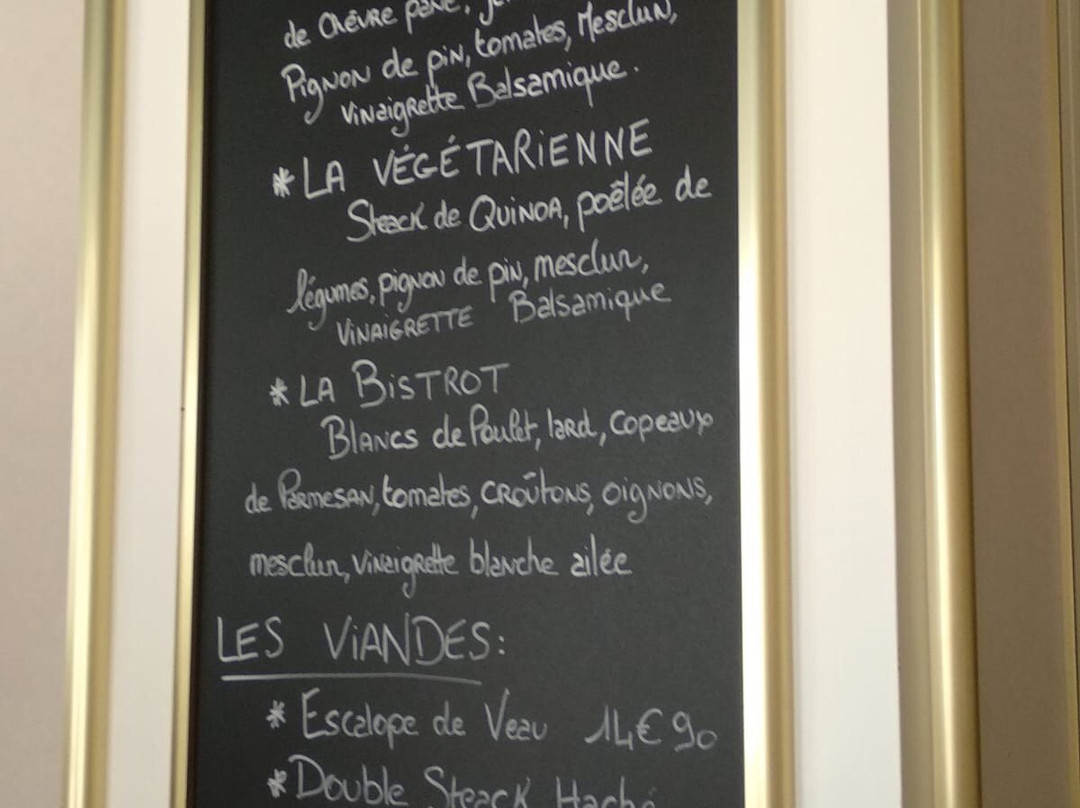 de Chèvre pané,
Pignon de pin, tomates, Mesclun,
Vinaigrette Balsamique.
* LA VÉGÉTARIENNE
Steack de Quinoa, poêlée de
légumes, pignon de pin, mesclun,
VINAIGRETTE Balsamique
* LA BISTROT
Blancs de Poulet, lard, copeaux
de Parmesan, tomates, croûtons, oignons,
mesclun, vinaigrette blanche ailée
LES VIANDES:
* Escalope de Veau 14€90
* Double Steack Haché